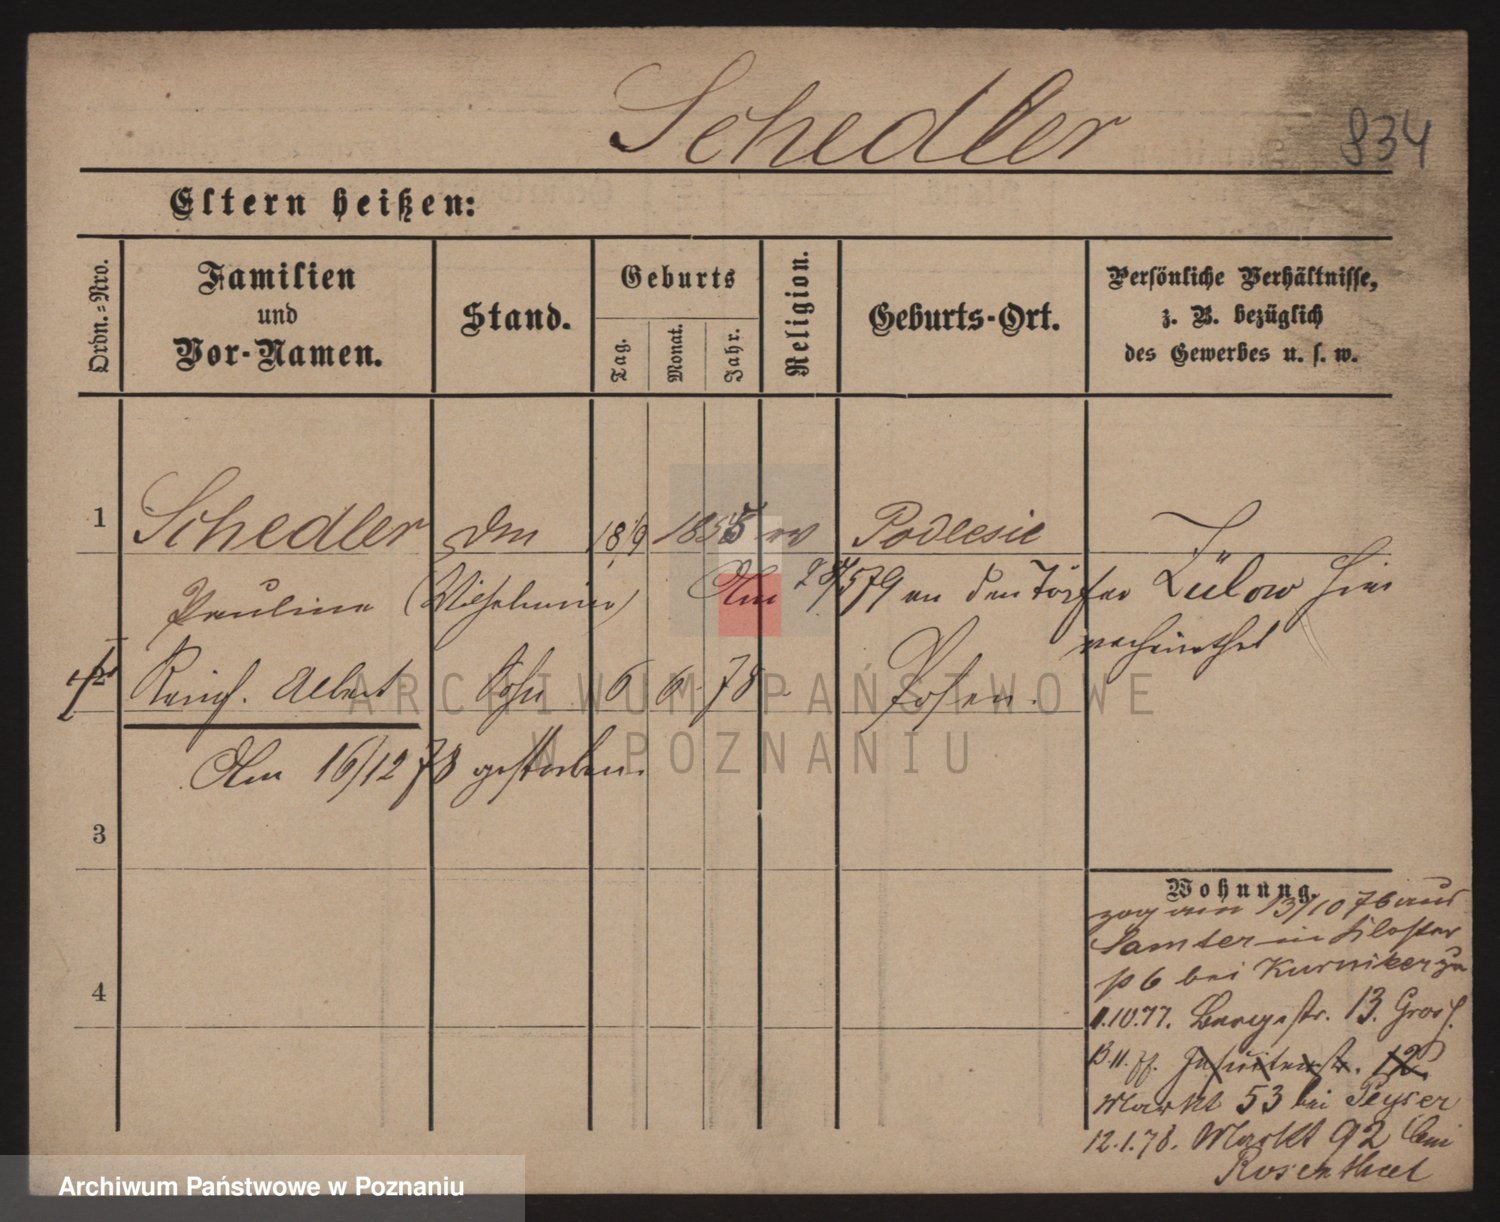 Schedler
834
Eltern heißen:
Ordn.-Nro.
Familien
und
Vor-Namen.
Stand.
Geburts
Tag.
Monat.
Jahr.
Religion.
Geburts-Ort.
Persönliche Verhältnisse,
z. B. bezüglich
des Gewerbes u. s. w.
1 Schedler 18/9 1855 ev Podlesie
Pauline (Wilhelmine) Am 579 an den Lülow hier
verheirathet
2 Reinh. Albert Sohn 6 6. 78 Posen.
Am 16/12 78 gestorben.
3
4
Wohnung.
zog am 13/10 76 aus
Samter in Kloster
No 6 bei Kurniker zu
1.10.77. Bergstr. 13. Groß.
13.11. Jesuitenstr. 12.
Markt 53 bei Peyser
12.1.78. Markt 92 bei
Rosenthal
ARCHIWUM PAŃSTWOWE
W POZNANIU
Archiwum Państwowe w Poznaniu